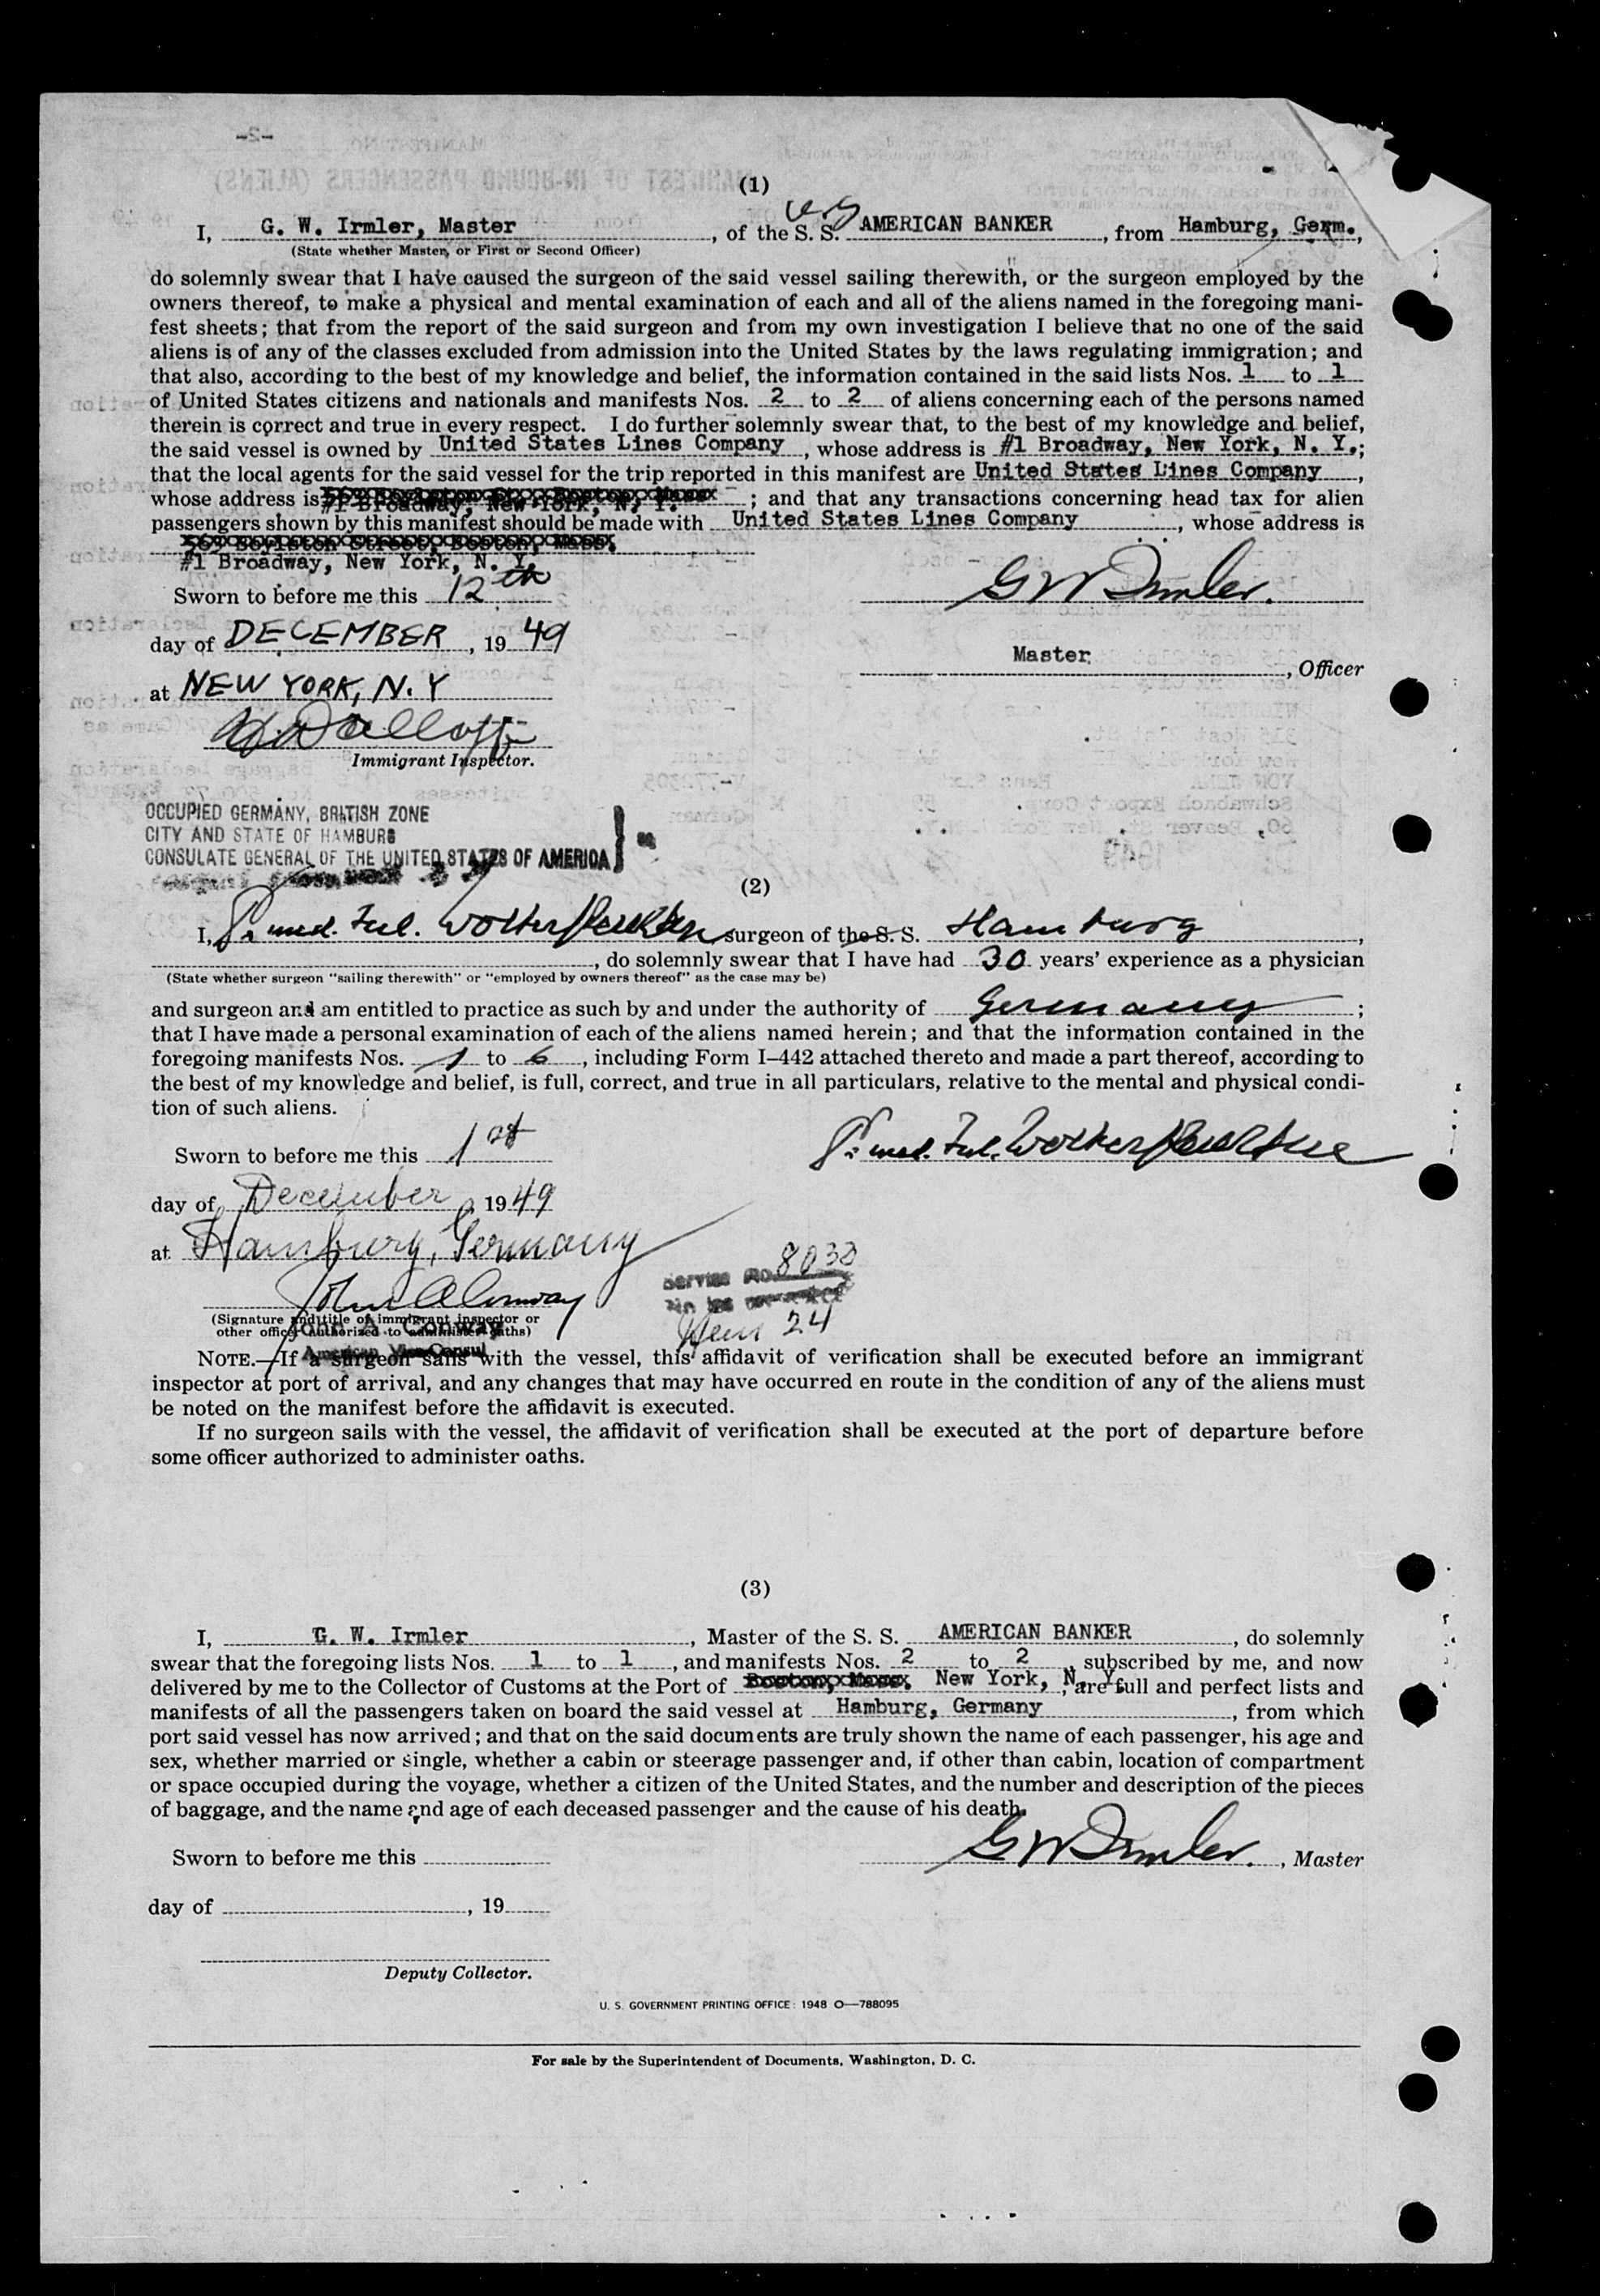 (1)
I, G. W. Irmler, Master, of the S. S. AMERICAN BANKER, from Hamburg, Germ.,
(State whether Master, or First or Second Officer)
do solemnly swear that I have caused the surgeon of the said vessel sailing therewith, or the surgeon employed by the
owners thereof, to make a physical and mental examination of each and all of the aliens named in the foregoing mani-
fest sheets; that from the report of the said surgeon and from my own investigation I believe that no one of the said
aliens is of any of the classes excluded from admission into the United States by the laws regulating immigration; and
that also, according to the best of my knowledge and belief, the information contained in the said lists Nos. 1 to 1
of United States citizens and nationals and manifests Nos. 2 to 2 of aliens concerning each of the persons named
therein is correct and true in every respect. I do further solemnly swear that, to the best of my knowledge and belief,
the said vessel is owned by United States Lines Company, whose address is #1 Broadway, New York, N. Y.;
that the local agents for the said vessel for the trip reported in this manifest are United States Lines Company,
whose address is #1 Broadway, New York, N. Y. ; and that any transactions concerning head tax for alien
passengers shown by this manifest should be made with United States Lines Company, whose address is
569 Boylston Street, Boston, Mass.
#1 Broadway, New York, N. Y.
Sworn to before me this 12th
G W Irmler.
day of DECEMBER, 19 49
Master, Officer
at NEW YORK, N. Y
Immigrant Inspector.
OCCUPIED GERMANY, BRITISH ZONE
CITY AND STATE OF HAMBURG
CONSULATE GENERAL OF THE UNITED STATES OF AMERICA
(2)
I, Dr. med. surgeon of the S. S. Hamburg,
, do solemnly swear that I have had 30 years' experience as a physician
(State whether surgeon "sailing therewith" or "employed by owners thereof" as the case may be)
and surgeon and am entitled to practice as such by and under the authority of Germany;
that I have made a personal examination of each of the aliens named herein; and that the information contained in the
foregoing manifests Nos. 1 to 6, including Form I-442 attached thereto and made a part thereof, according to
the best of my knowledge and belief, is full, correct, and true in all particulars, relative to the mental and physical condi-
tion of such aliens.
Sworn to before me this 1st
Dr. med.
day of December, 19 49
at Hamburg, Germany
Service No. 8038
John A Conway
Item 24
(Signature and title of immigrant inspector or
other officer authorized to administer oaths)
John A. Conway
American Vice Consul
NOTE.—If a surgeon sails with the vessel, this affidavit of verification shall be executed before an immigrant
inspector at port of arrival, and any changes that may have occurred en route in the condition of any of the aliens must
be noted on the manifest before the affidavit is executed.
If no surgeon sails with the vessel, the affidavit of verification shall be executed at the port of departure before
some officer authorized to administer oaths.
(3)
I, G. W. Irmler, Master of the S. S. AMERICAN BANKER, do solemnly
swear that the foregoing lists Nos. 1 to 1, and manifests Nos. 2 to 2, subscribed by me, and now
delivered by me to the Collector of Customs at the Port of Boston, Mass. New York, N. Y., are full and perfect lists and
manifests of all the passengers taken on board the said vessel at Hamburg, Germany, from which
port said vessel has now arrived; and that on the said documents are truly shown the name of each passenger, his age and
sex, whether married or single, whether a cabin or steerage passenger and, if other than cabin, location of compartment
or space occupied during the voyage, whether a citizen of the United States, and the number and description of the pieces
of baggage, and the name and age of each deceased passenger and the cause of his death.
Sworn to before me this
G W Irmler., Master
day of , 19
Deputy Collector.
U. S. GOVERNMENT PRINTING OFFICE: 1948 O—788095
For sale by the Superintendent of Documents, Washington, D. C.